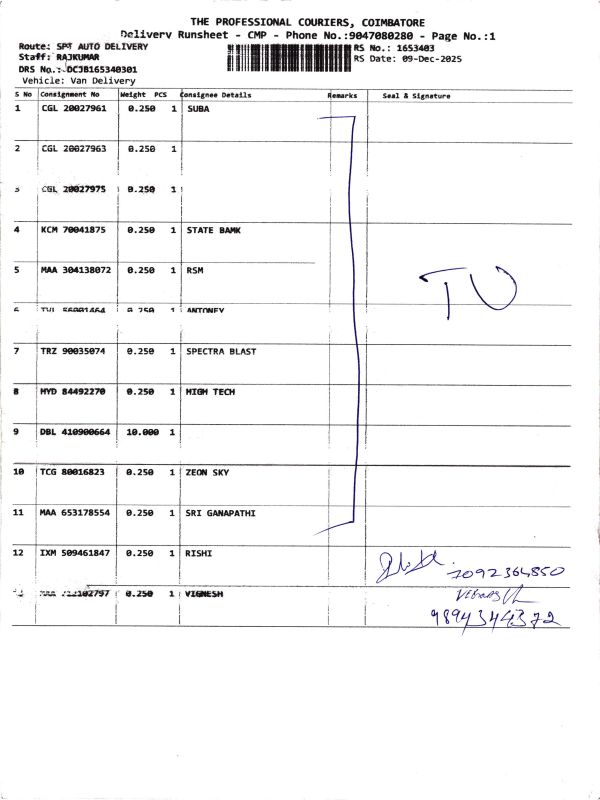 THE PROFESSIONAL COURIERS, COIMBATORE
Delivery Runsheet - CMP - Phone No.:9047080280 - Page No.:1
Route: SPT AUTO DELIVERY
Staff: RAJKUMAR
DRS No.: DCJB165340301
Vehicle: Van Delivery
RS No.: 1653403
RS Date: 09-Dec-2025
S No Consignment No Weight PCS Consignee Details Remarks Seal & Signature
1 CGL 20027961 0.250 1 SUBA
2 CGL 20027963 0.250 1
3 CGL 20027975 0.250 1
4 KCM 70041875 0.250 1 STATE BAMK
5 MAA 304138072 0.250 1 RSM
TU
6 1 ANTONEY
7 TRZ 90035074 0.250 1 SPECTRA BLAST
8 HYD 84492270 0.250 1 HIGH TECH
9 DBL 410900664 10.000 1
10 TCG 80016823 0.250 1 ZEON SKY
11 MAA 653178554 0.250 1 SRI GANAPATHI
12 IXM 509461847 0.250 1 RISHI
7092364850
0.250 1 VIGNESH
9894344372